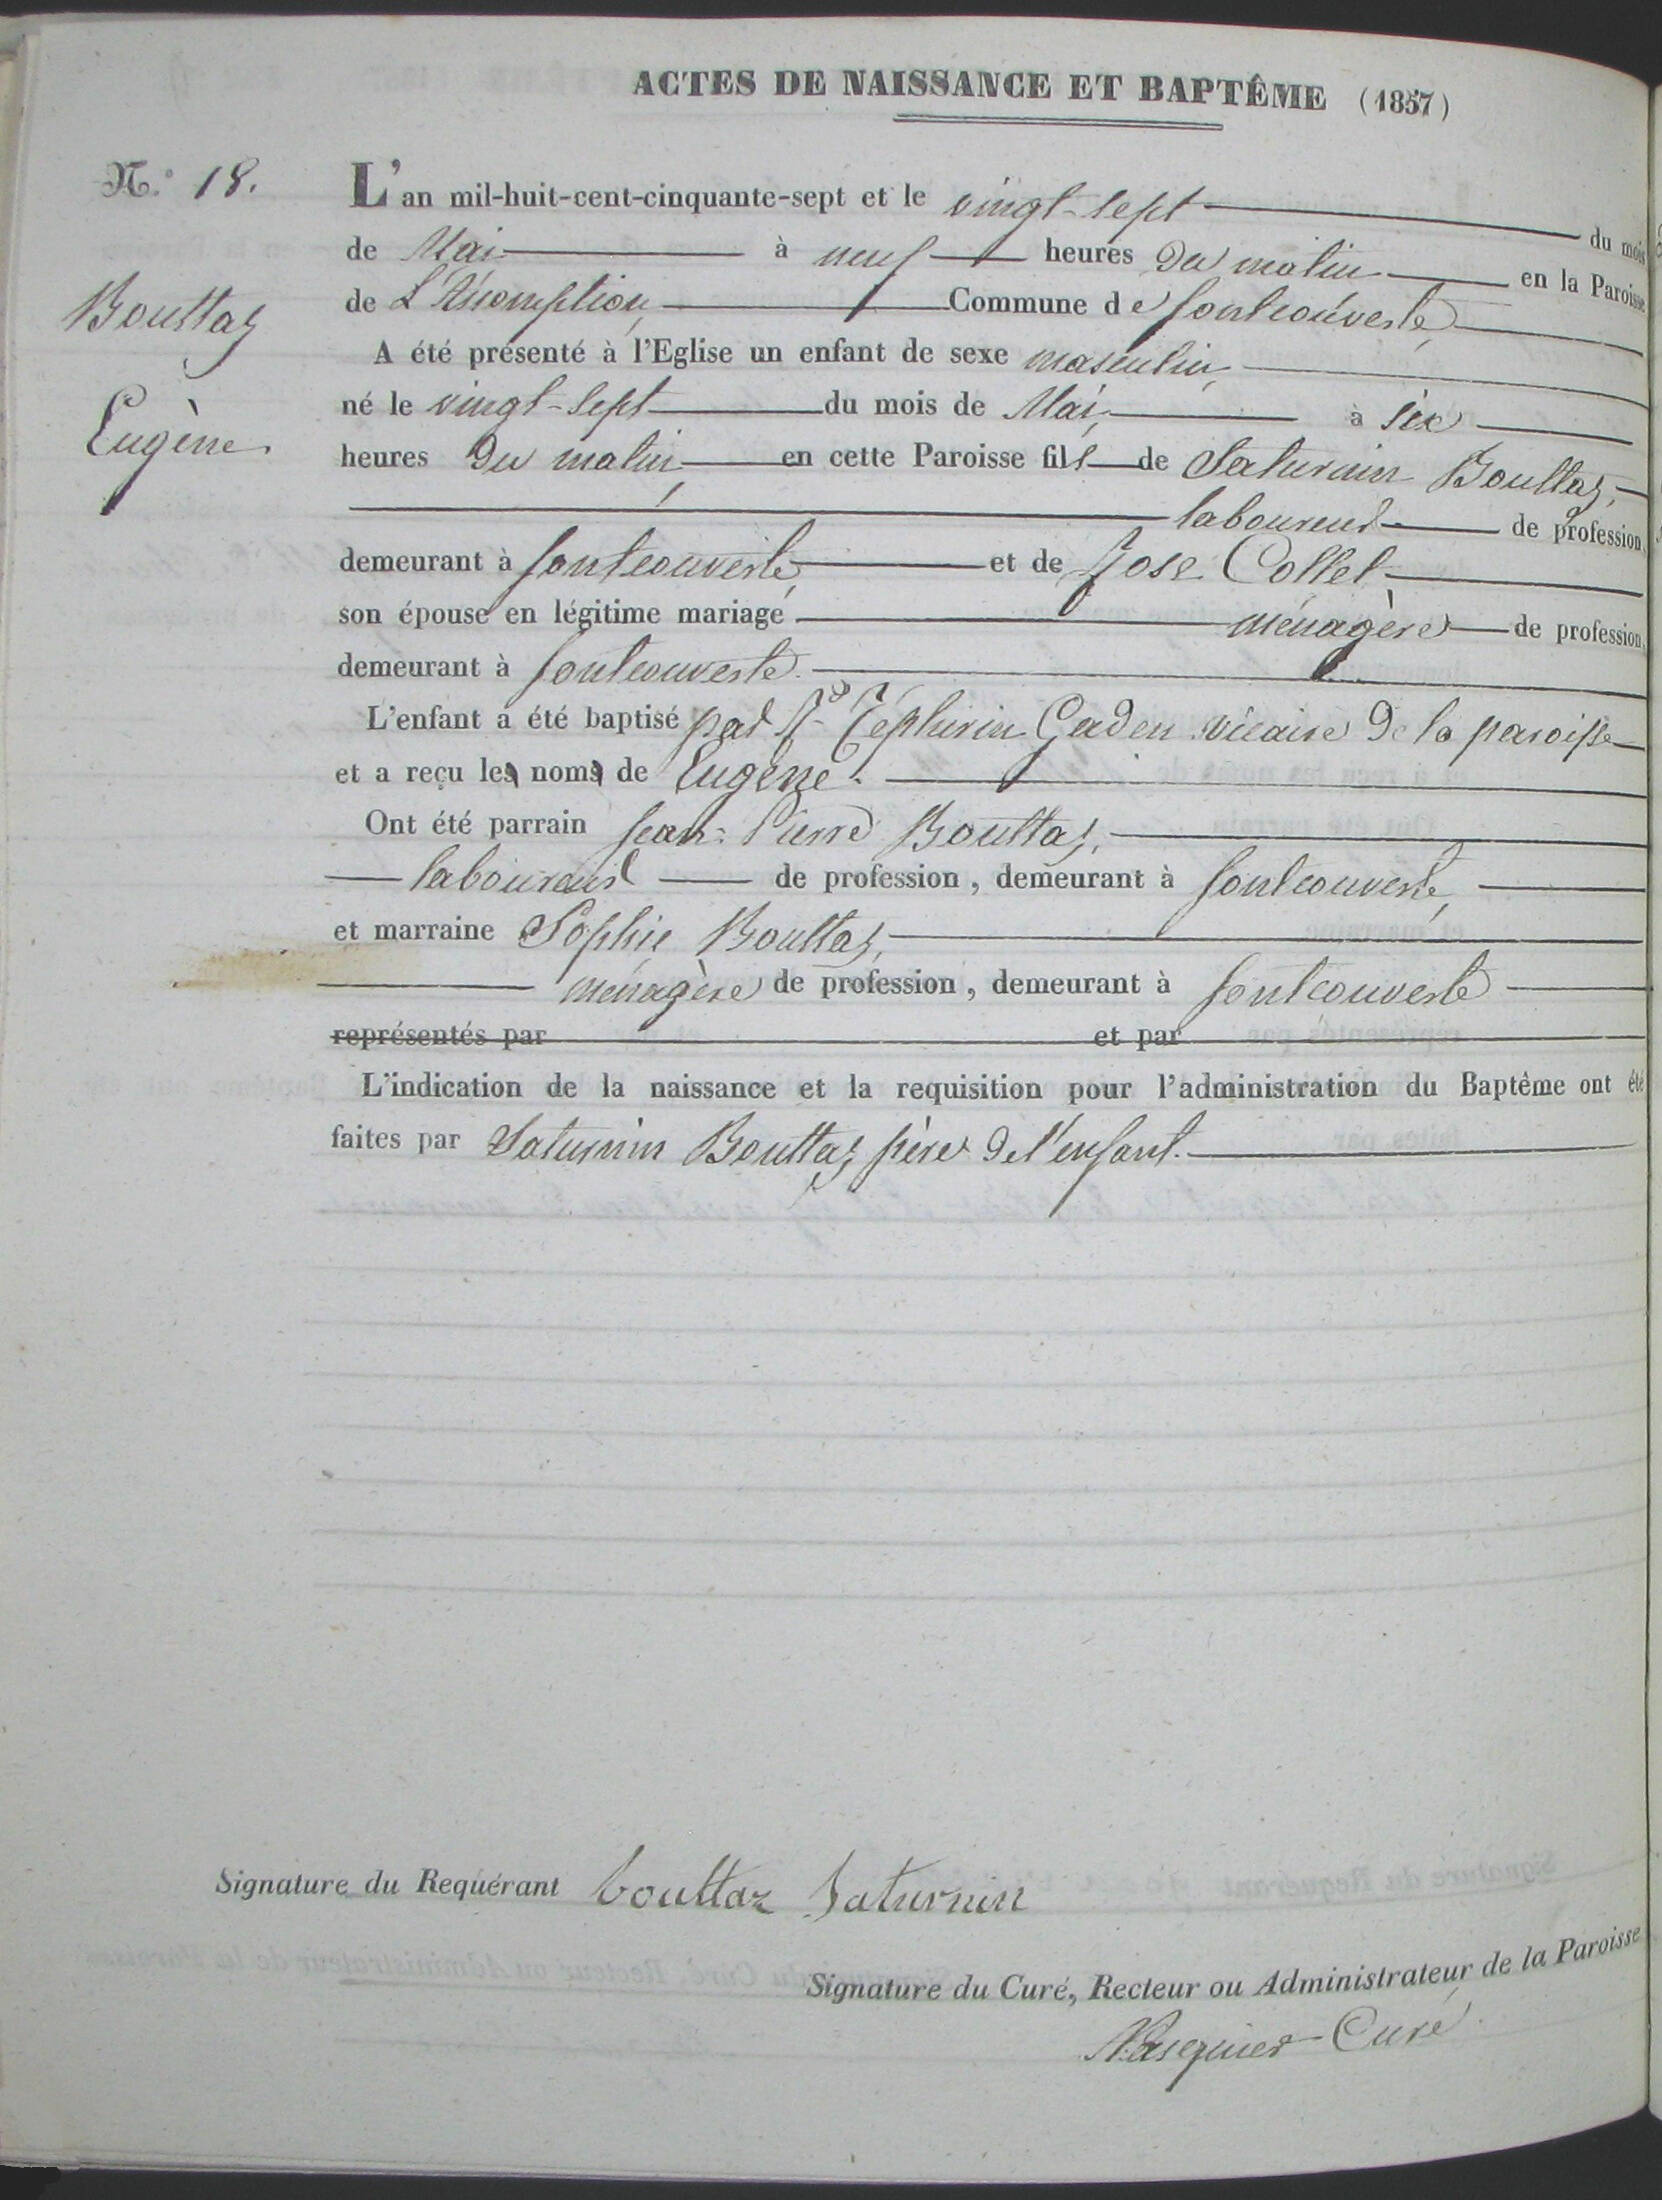 ACTES DE NAISSANCE ET BAPTÊME (1857)
N.° 18.
Bouttaz
Eugène
L'an mil-huit-cent-cinquante-sept et le vingt-sept du mois
de Mai à neuf heures du matin en la Paroisse
de L'Assomption Commune de fontcouverte
A été présenté à l'Eglise un enfant de sexe masculin
né le vingt-sept du mois de Mai à six
heures du matin en cette Paroisse fils de Saturnin Bouttaz,
laboureur de profession,
demeurant à fontcouverte et de Rose Collet
son épouse en légitime mariage ménagère de profession,
demeurant à fontcouverte.
L'enfant a été baptisé par Rd Zéphirin Gaden vicaire de la paroisse
et a reçu le nom de Eugène.
Ont été parrain Jean-Pierre Bouttaz,
laboureur de profession, demeurant à fontcouverte,
et marraine Sophie Bouttaz,
ménagère de profession, demeurant à fontcouverte
représentés par et par
L'indication de la naissance et la requisition pour l'administration du Baptême ont été
faites par Saturnin Bouttaz père de l'enfant.
Signature du Requérant bouttaz Saturnin
Signature du Curé, Recteur ou Administrateur de la Paroisse
Curé